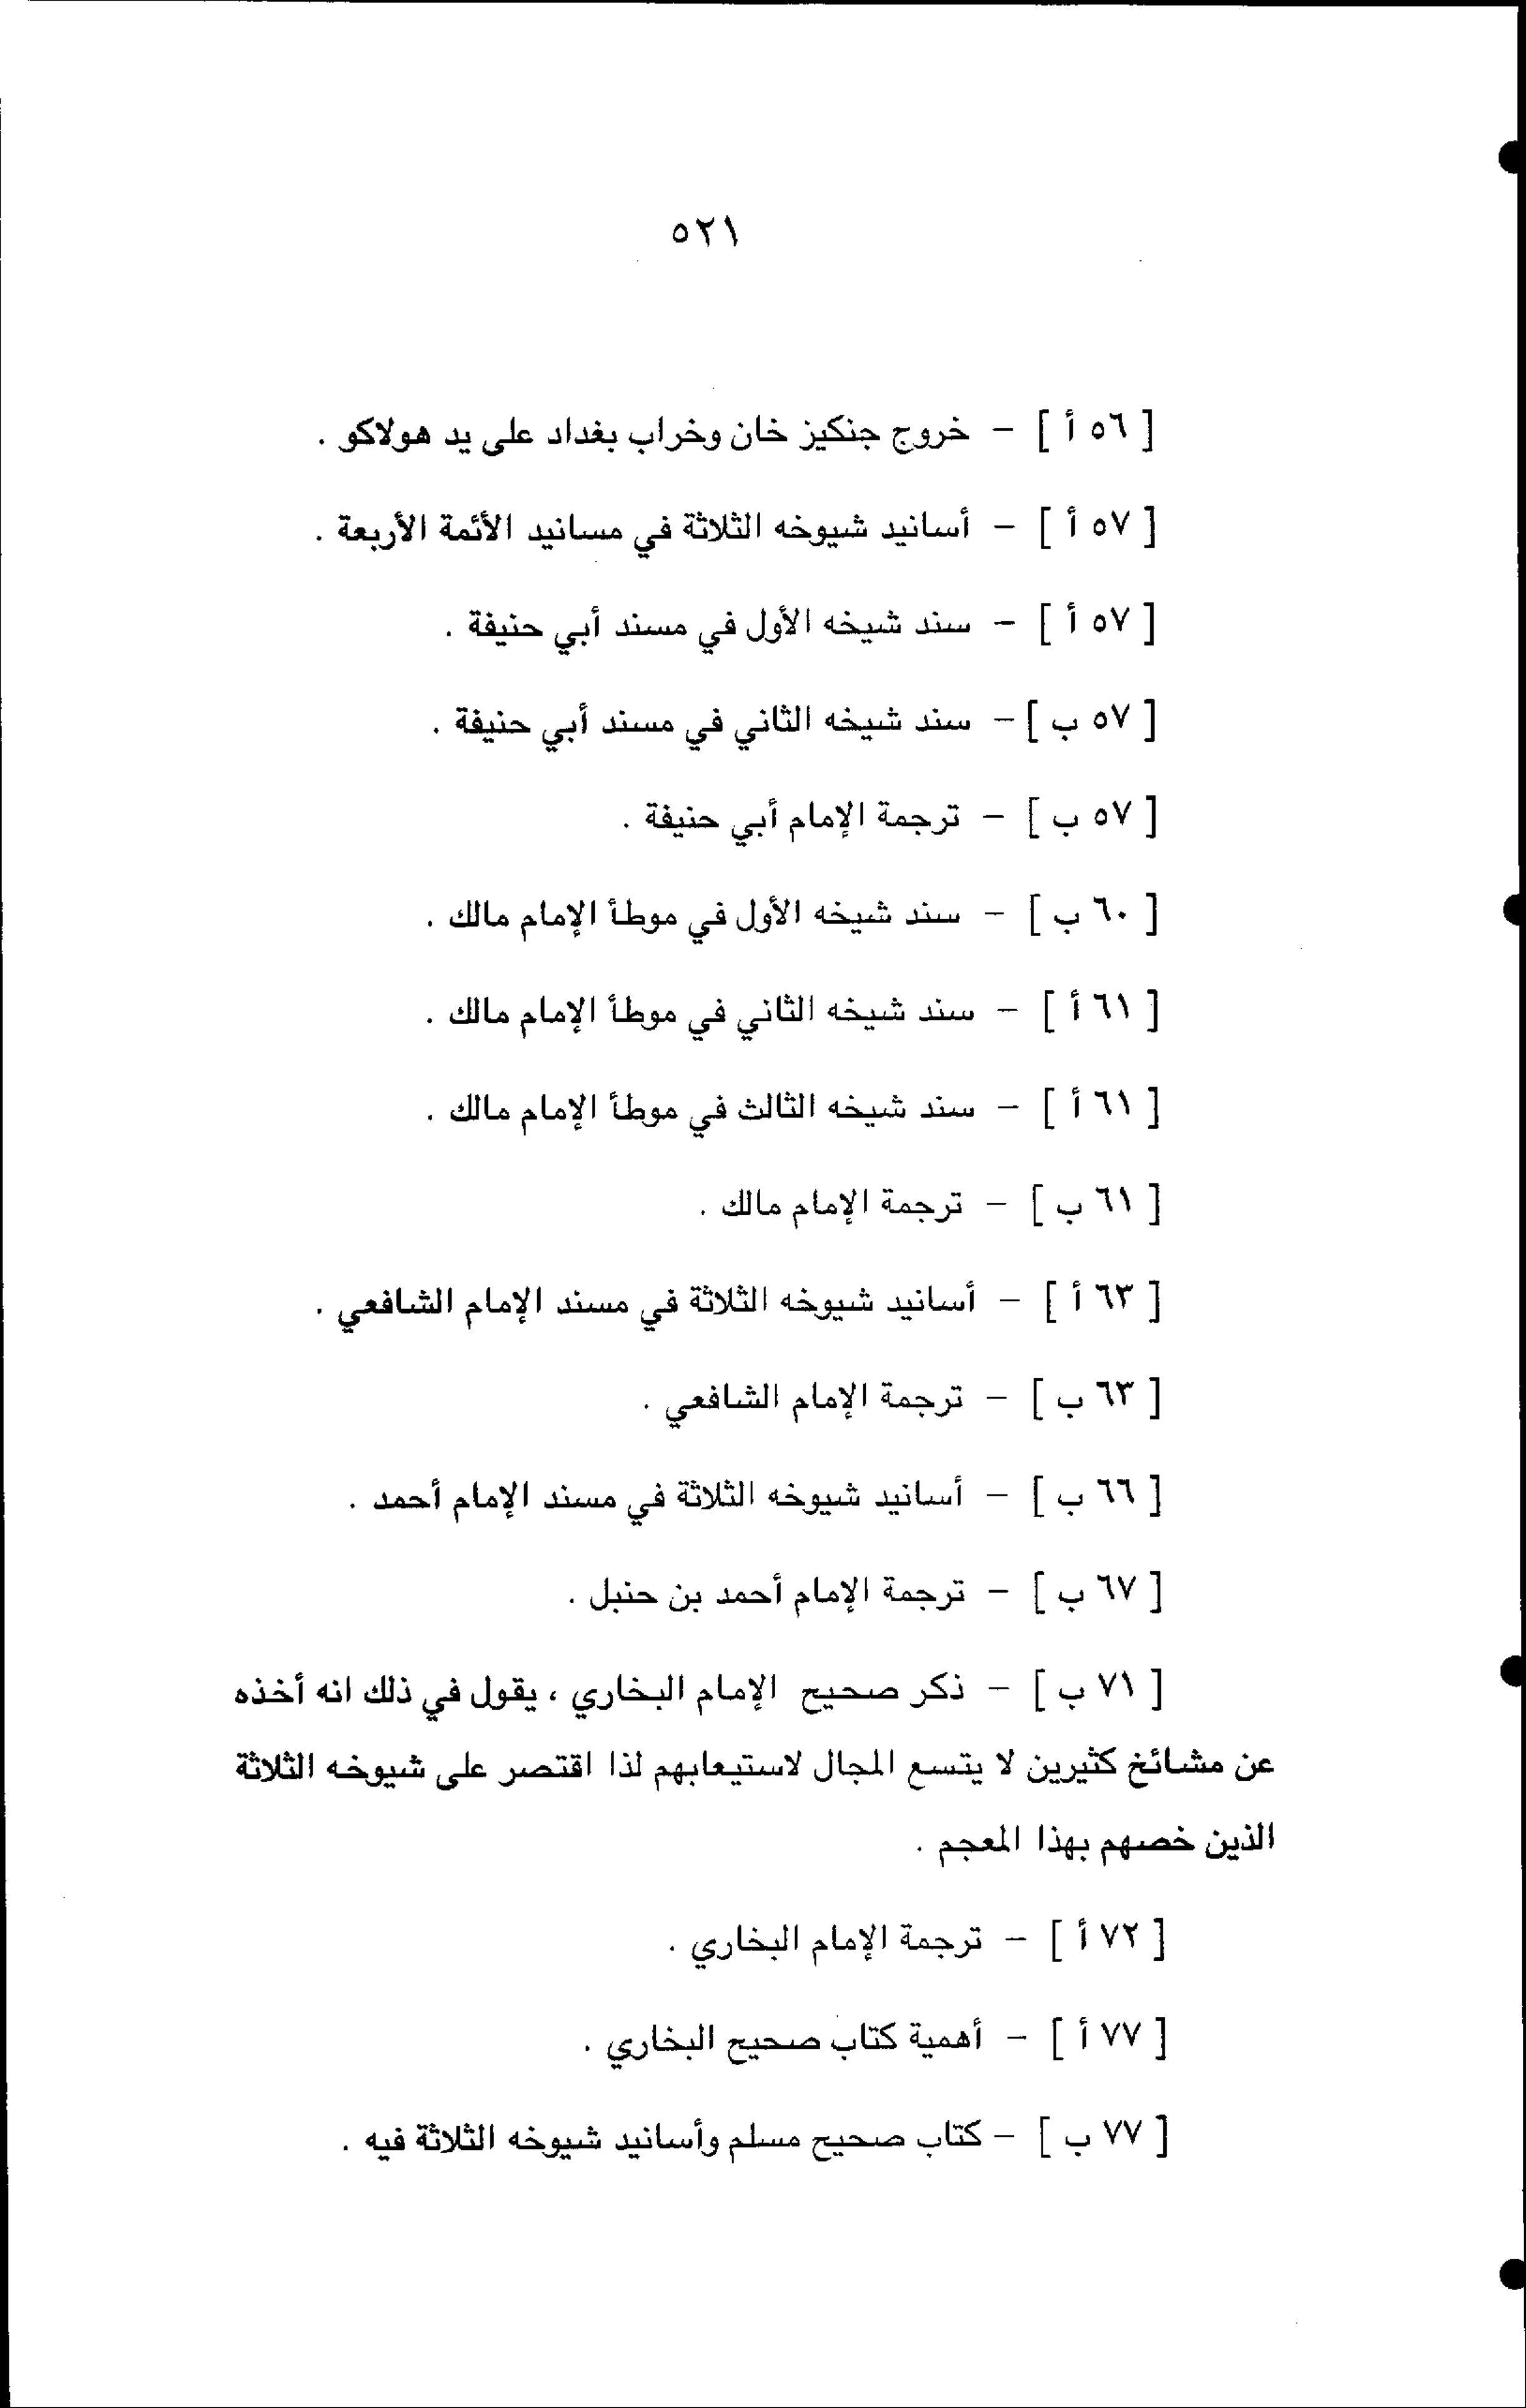 ٥٢١
[ ٥٦ أ ] - خروج جنكيز خان وخراب بغداد على يد هولاكو .
[ ٥٧ أ ] - أسانيد شيوخه الثلاثة في مسانيد الأئمة الأربعة .
[ ٥٧ أ ] - سند شيخه الأول في مسند أبي حنيفة .
[ ٥٧ ب ] - سند شيخه الثاني في مسند أبي حنيفة .
[ ٥٧ ب ] - ترجمة الإمام أبي حنيفة .
[ ٦٠ ب ] - سند شيخه الأول في موطأ الإمام مالك .
[ ٦١ أ ] - سند شيخه الثاني في موطأ الإمام مالك .
[ ٦١ أ ] - سند شيخه الثالث في موطأ الإمام مالك .
[ ٦١ ب ] - ترجمة الإمام مالك .
[ ٦٣ أ ] - أسانيد شيوخه الثلاثة في مسند الإمام الشافعي .
[ ٦٣ ب ] - ترجمة الإمام الشافعي .
[ ٦٦ ب ] - أسانيد شيوخه الثلاثة في مسند الإمام أحمد .
[ ٦٧ ب ] - ترجمة الإمام أحمد بن حنبل .
[ ٧١ ب ] - ذكر صحيح الإمام البخاري ، يقول في ذلك انه أخذه
عن مشائخ كثيرين لا يتسع المجال لاستيعابهم لذا اقتصر على شيوخه الثلاثة
الذين خصهم بهذا المعجم .
[ ٧٢ أ ] - ترجمة الإمام البخاري .
[ ٧٧ أ ] - أهمية كتاب صحيح البخاري .
[ ٧٧ ب ] - كتاب صحيح مسلم وأسانيد شيوخه الثلاثة فيه .